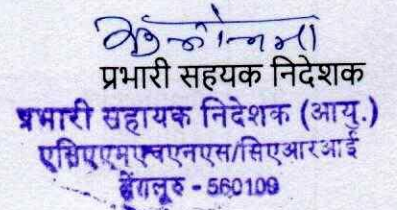 प्रभारी सहयक निदेशक
प्रभारी सहायक निदेशक (आयु.)
एसिएएमएचएनएस/सिएआरआई
बेंगलूरु - 560109